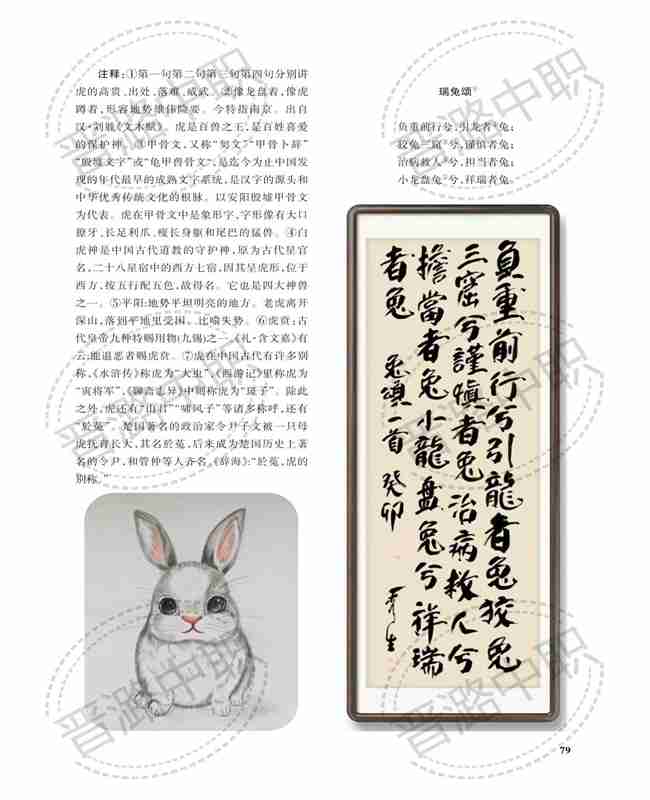 注释:①第一句第二句第三句第四句分别讲
虎的高贵、出处、落难、威武。②像龙盘着,像虎
蹲着,形容地势雄伟险要。今特指南京。出自
汉·刘胜《文木赋》。虎是百兽之王,是百姓喜爱
的保护神。③甲骨文,又称“契文”“甲骨卜辞”
“殷墟文字”或“龟甲兽骨文”,是迄今为止中国发
现的年代最早的成熟文字系统,是汉字的源头和
中华优秀传统文化的根脉。以安阳殷墟甲骨文
为代表。虎在甲骨文中是象形字,字形像有大口
獠牙、长足利爪、瘦长身躯和尾巴的猛兽。④白
虎神是中国古代道教的守护神,原为古代星官
名,二十八星宿中的西方七宿,因其呈虎形,位于
西方,按五行配五色,故得名。它也是四大神兽
之一。⑤平阳:地势平坦明亮的地方。老虎离开
深山,落到平地里受困。比喻失势。⑥虎贲:古
代皇帝九种特赐用物(九锡)之一,《礼·含文嘉》有
云:能退恶者赐虎贲。⑦虎在中国古代有许多别
称,《水浒传》称虎为“大虫”,《西游记》里称虎为
“寅将军”,《聊斋志异》中则称虎为“斑子”。除此
之外,虎还有“山君”“啸风子”等诸多称呼,还有
“於菟”。楚国著名的政治家令尹子文被一只母
虎抚育长大,其名於菟,后来成为楚国历史上著
名的令尹,和管仲等人齐名。《辞海》:“於菟,虎的
别称。”
瑞兔颂
负重前行兮,引龙者兔;
狡兔三窟兮,谨慎者兔;
治病救人兮,担当者兔;
小龙盘兔兮,祥瑞者兔。
負重前行兮引龍者兔狡兔
三窟兮謹慎者兔治病救人兮
擔當者兔小龍盤兔兮祥瑞
者兔 兔頌一首 癸卯
79
晋潞中职
晋潞中职
晋潞中职
晋潞中职
晋潞中职
晋潞中职